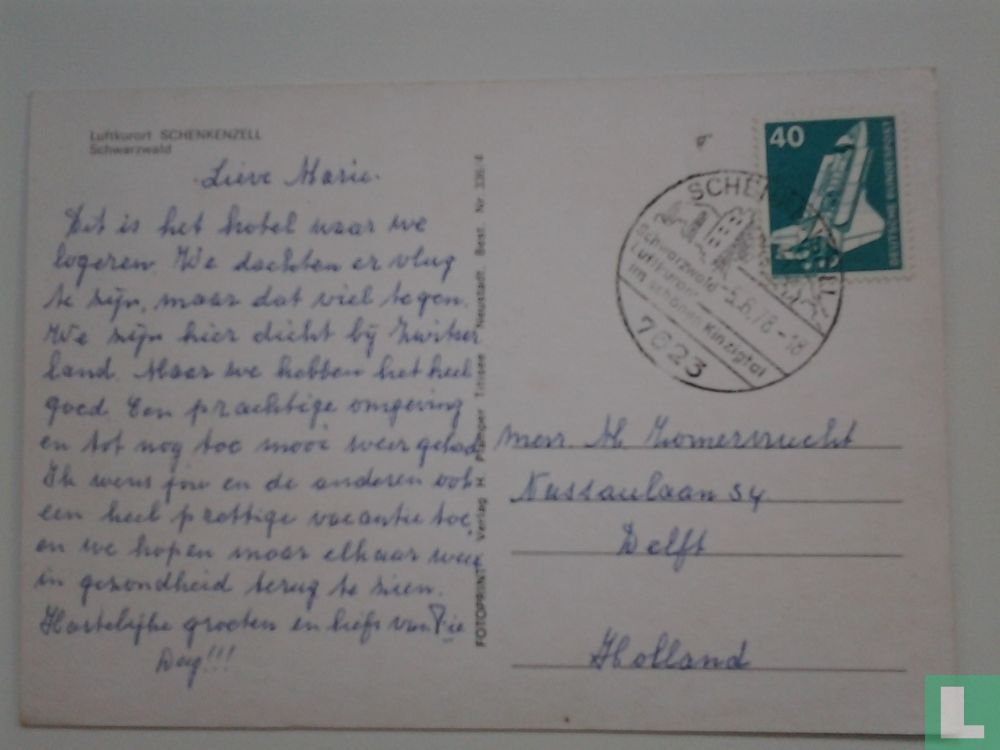 Luftkurort SCHENKENZELL
Schwarzwald
Lieve Marie.
Dit is het hotel waar we
logeren. We dachten er vlug
te zijn, maar dat viel tegen.
We zijn hier dicht bij Zwitser
land. Maar we hebben het heel
goed. Een prachtige omgeving
en tot nog toe mooi weer gehad
Ik wens jou en de anderen ook
een heel prettige vacantie toe,
en we hopen maar elkaar weer
in gezondheid terug te zien.
Hartelijke groeten en liefs van Pie
Dag!!!
FOTOPRINT Verlag H. Pfamper Titisee Neustadt. Best. Nr. 336/4
40
DEUTSCHE BUNDESPOST
SCHENKENZELL
Schwarzwald
Luftkurort
im schönen Kinzigtal
-5.6.78-18
7623
Mevr. M Zomervrucht
Nassaulaan 54
Delft
Holland
L